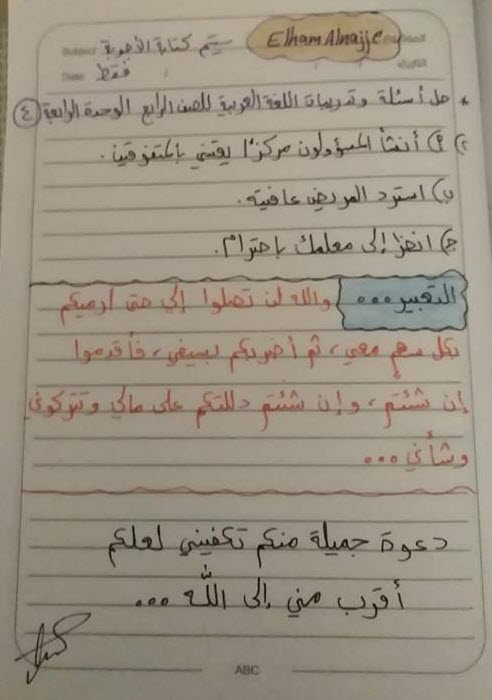 Elham Alnajje
Subject سيتم كتابة الأجوبة
Date فقط
* حل أسئلة وتدريبات اللغة العربية للصف الرابع الوحدة الرابعة (٤)
ج) أ) أنشأ المسؤولون مركزًا يعتني بالمتفوقين.
ب) استرد المريض عافيته.
ج) انظر إلى معلمك باحترام.
التعبير ... والله لن تصلوا إلي حتى أرميكم
بكل سهم معي، ثم أضربكم بسيفي، فأقدموا
إن شئتم، وإن شئتم دللتكم على مالي وتتركوني
وشأني ...
دعوة جميلة منكم تكفيني لعلكم
أقرب مني إلى الله ...
ABC